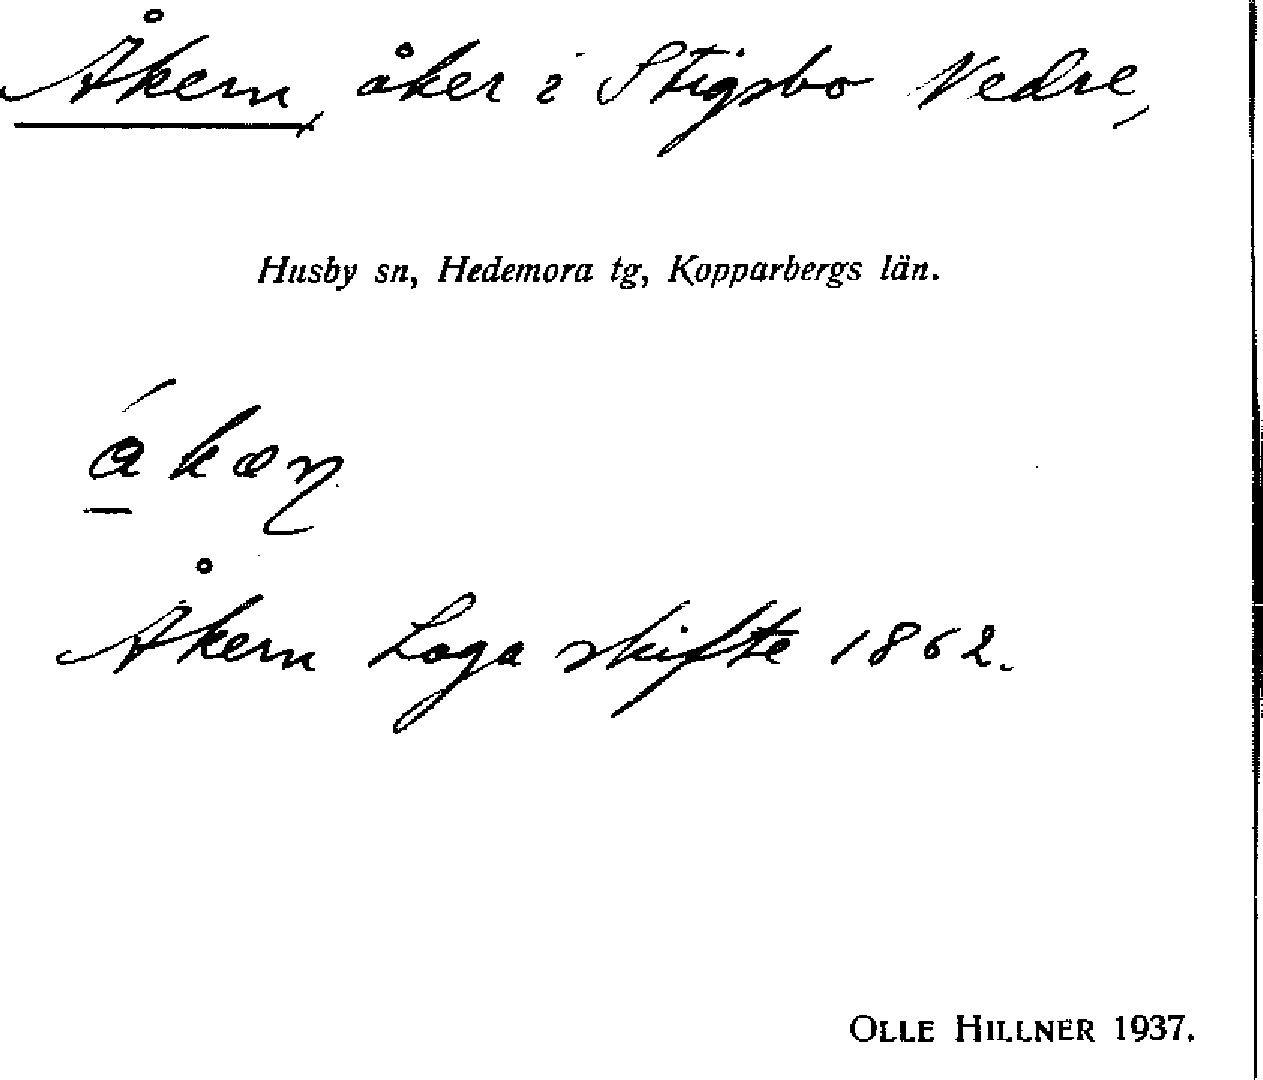 Åkern, åker i Stigsbo Vedre,
Husby sn, Hedemora tg, Kopparbergs län.
Åkern Laga skifte 1862.
OLLE HILLNER 1937.